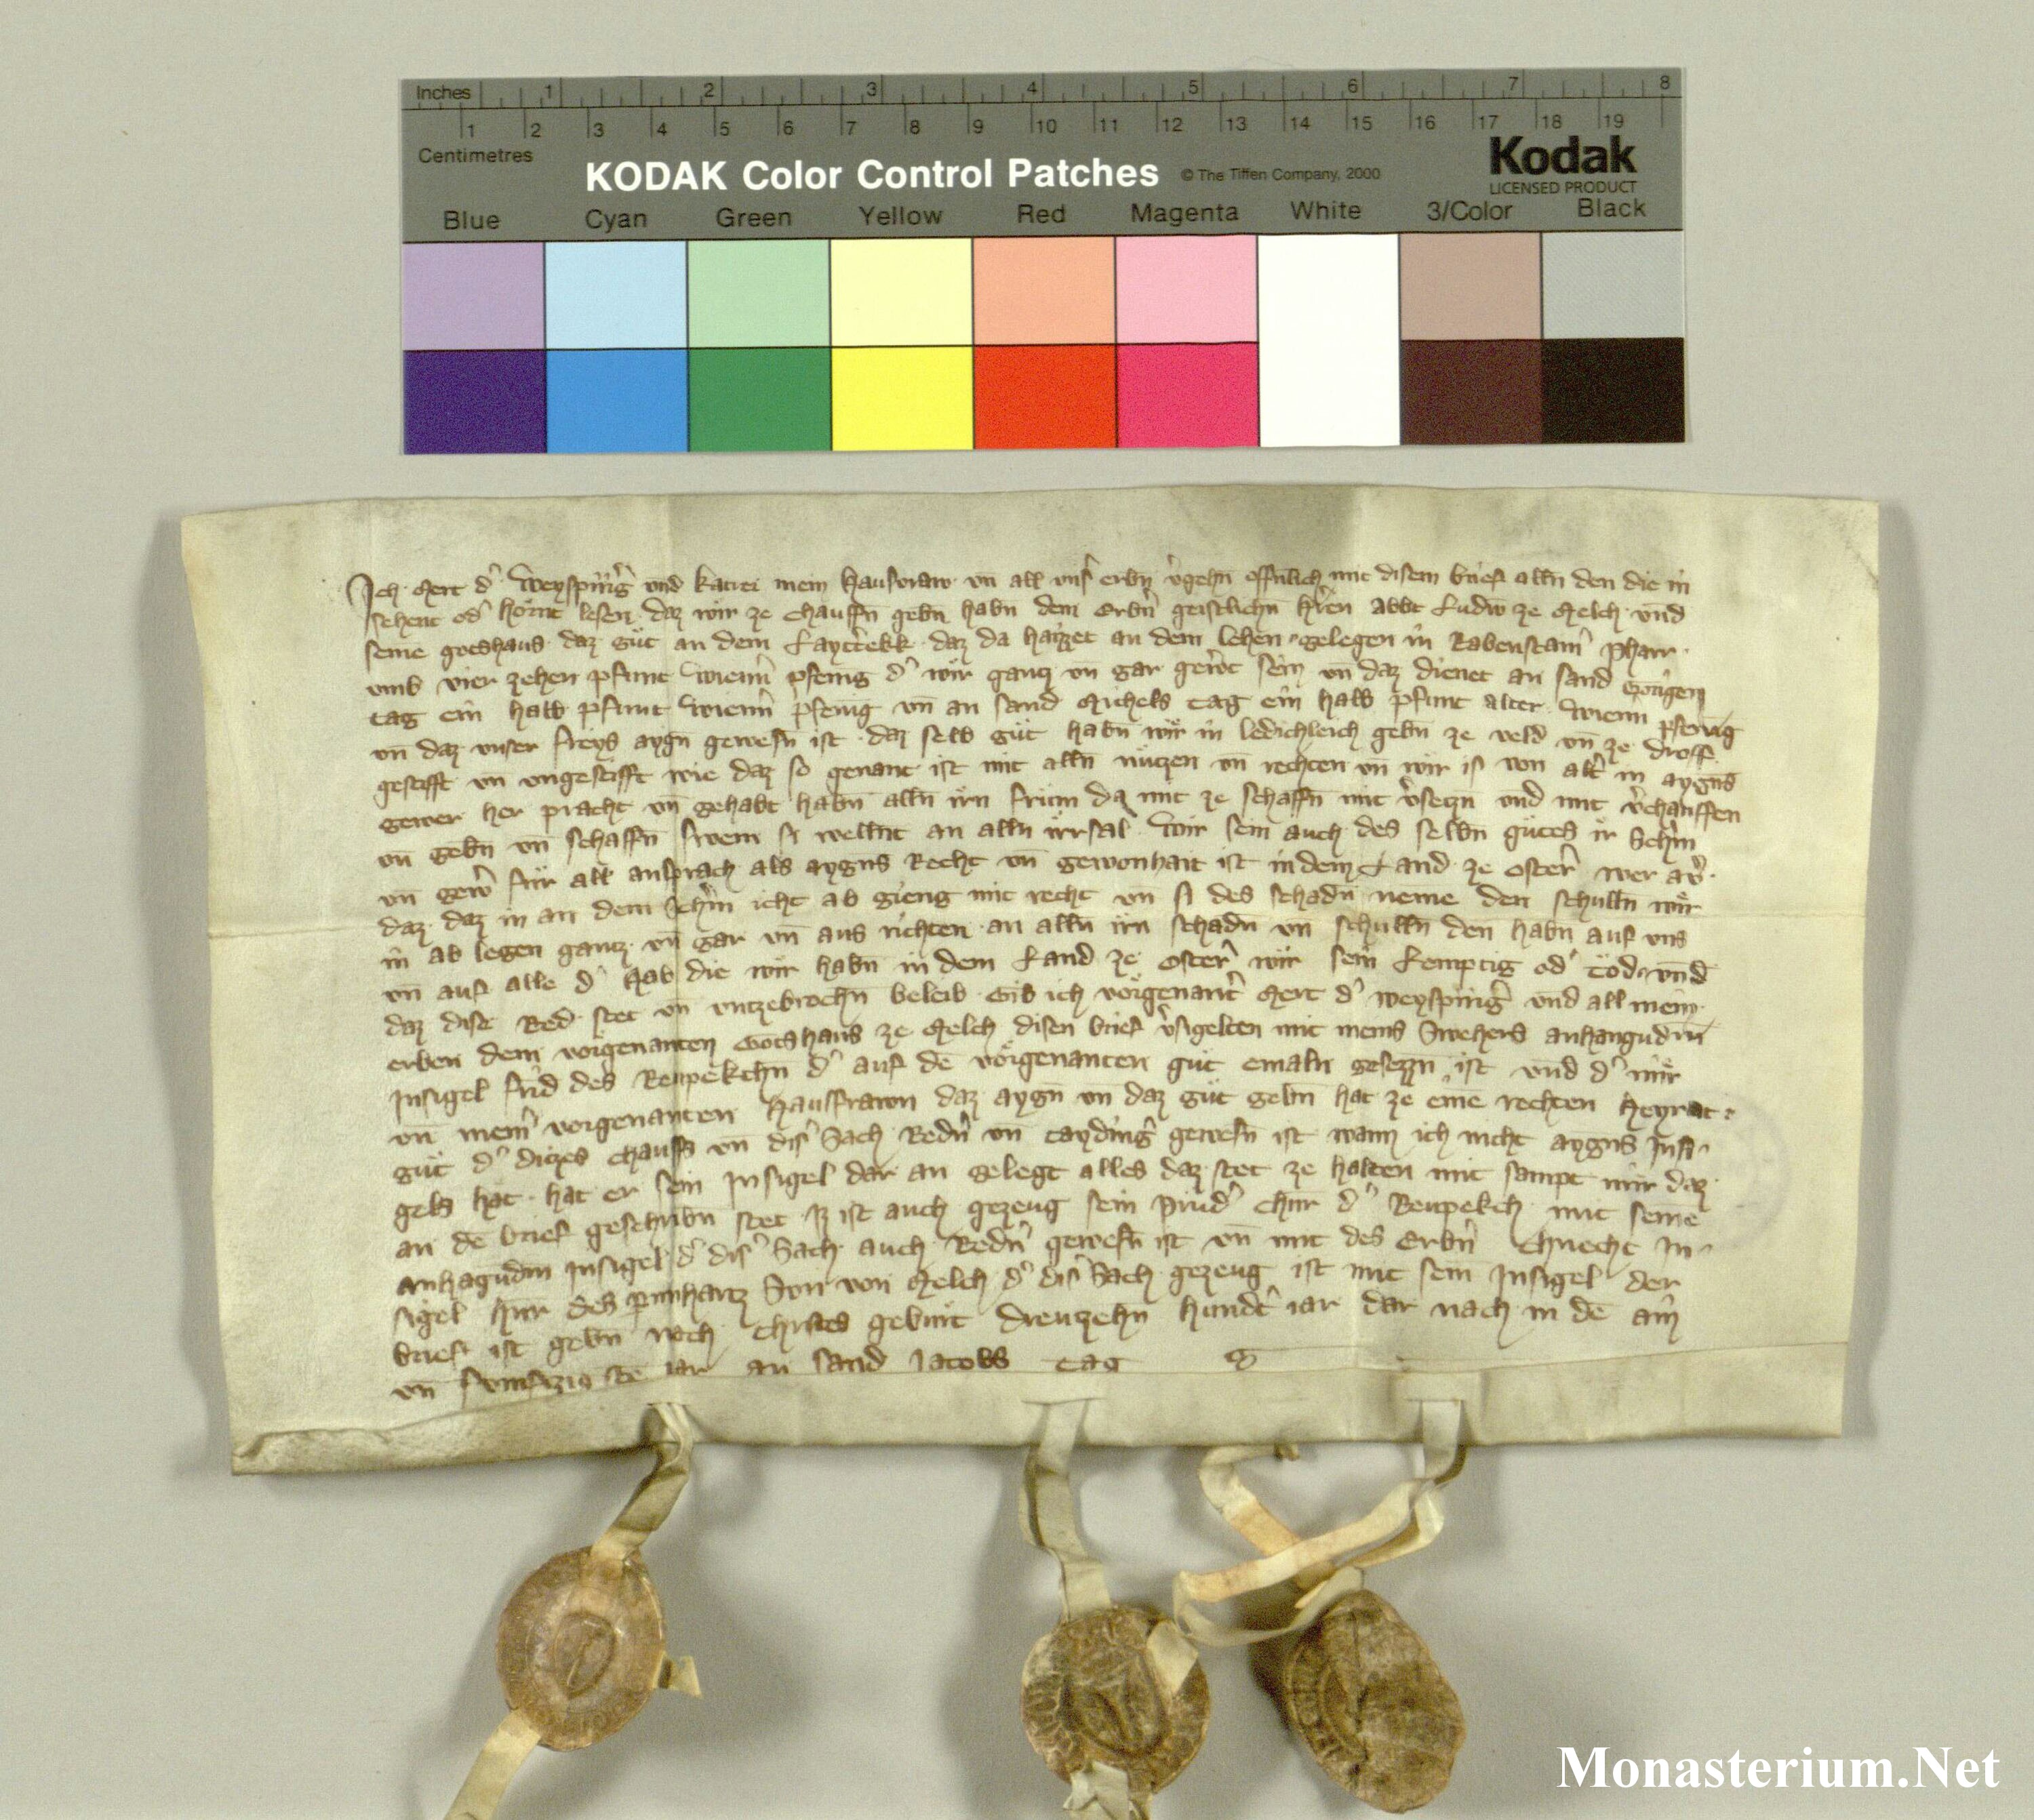 Inches 1 2 3 4 5 6 7 8
1 2 3 4 5 6 7 8 9 10 11 12 13 14 15 16 17 18 19
Centimetres
KODAK Color Control Patches © The Tiffen Company, 2000
Kodak
LICENSED PRODUCT
Blue Cyan Green Yellow Red Magenta White 3/Color Black
Ich Mert d' Weyspirig' und katrei mein hausvraw vn̄ all vnſ' erbn̄ v'gehn̄ offnlich mit disem brief alln̄ den die in
sehent od' hörnt lesen daz wir ze chauffn̄ gebn̄ habn dem Erbn̄ geistlichn̄ h'ren abbt Ludw̄ ze Melch vnd
seine gotshaus daz gůt an dem Layttekk daz da haizzet an dem lehen gelegen in Rabenstain' pharr
vmb vier zehen pfunt wienn' pfenig d' wir gantz vn gar gew't sein vn̄ daz dienet an sand Görigen
tag ein halb pfunt wienn' pfenig vn̄ an sand Michels tag ein halb pfunt alter wienn' pfenig
vn̄ daz vnser freys aygn̄ gewesn̄ ist daz selb gůt habn̄ wir in ledichleich gebn̄ ze veld vn̄ ze droff
gestifft vn vngestifft wie daz so genant ist mit alln̄ nützen vn̄ rechten vn̄ wir is von alt' in aygns
gewer her pracht vn̄ gehabt habn̄ alln̄ irn frum da mit ze schaffn̄ mit v'setzn vnd mit v'chauffen
vn̄ gebn̄ vn̄ schaffn̄ swem si wellnt an alln irrsal Wir sein auch des selbn̄ gůtes ir Sch'm
vn̄ gew' für all ansprach als aygns Recht vn̄ gewonhait ist in dem Land ze Oster' wer av'
daz daz in an dem sch'm icht ab gieng mit recht vn si des schadn̄ neme den schulln̄ wir
in ab legen gantz vn̄ gar vn̄ aus richten an alln̄ irn schadn̄ vn̄ schulln̄ den habn̄ auf vns
vn̄ auf alle d' Hab die wir habn̄ in dem Land ze Oster' wir sein Lemptig od' Tod vnd
daz dise Red stet vn̄ vntzebrochn̄ beleib Gib ich vorgenant' Mert d' weyspirig' vnd all mein
erben dem vorgenanten Gotshaus ze Melch disen brief v'sigelten mit meins Swehers anhangudm̄
Insigel frid des Reupekchn̄ d' auf dē vorgenanten gůt emaln gesezzn̄ ist vnd d' mir
vn̄ mein' vorgenanten Hausfrawn daz aygn̄ vn̄ daz gůt gebn̄ hat ze eine rechten Heyrat
gůt d' ditzes chaufs vn̄ dis' Sach Redn' vn̄ tayding' gewesn̄ ist wann ich nicht aygns Insi
gels hat hat er sein Insigel dar an gelegt alles daz stet ze halten mit sampt mir daz
an dē brief geschribn̄ stet Iz ist auch gezeug sein prud' Chūr d' Reupekch mit seine
anhagudm Insigel d' dis' Sach auch Redn' gewesn̄ ist vn̄ mit des Erbn' Chnecht In
sigel des Sun von Melch d' dis' Sach gezeug ist mit seim Insigel der
brief ist gebn̄ nach Christes geburt dreutzehn̄ hundt' iar dar nach in dē ain
vn̄ fvmfzig stē iar an sand Jacobs tag
Monasterium.Net